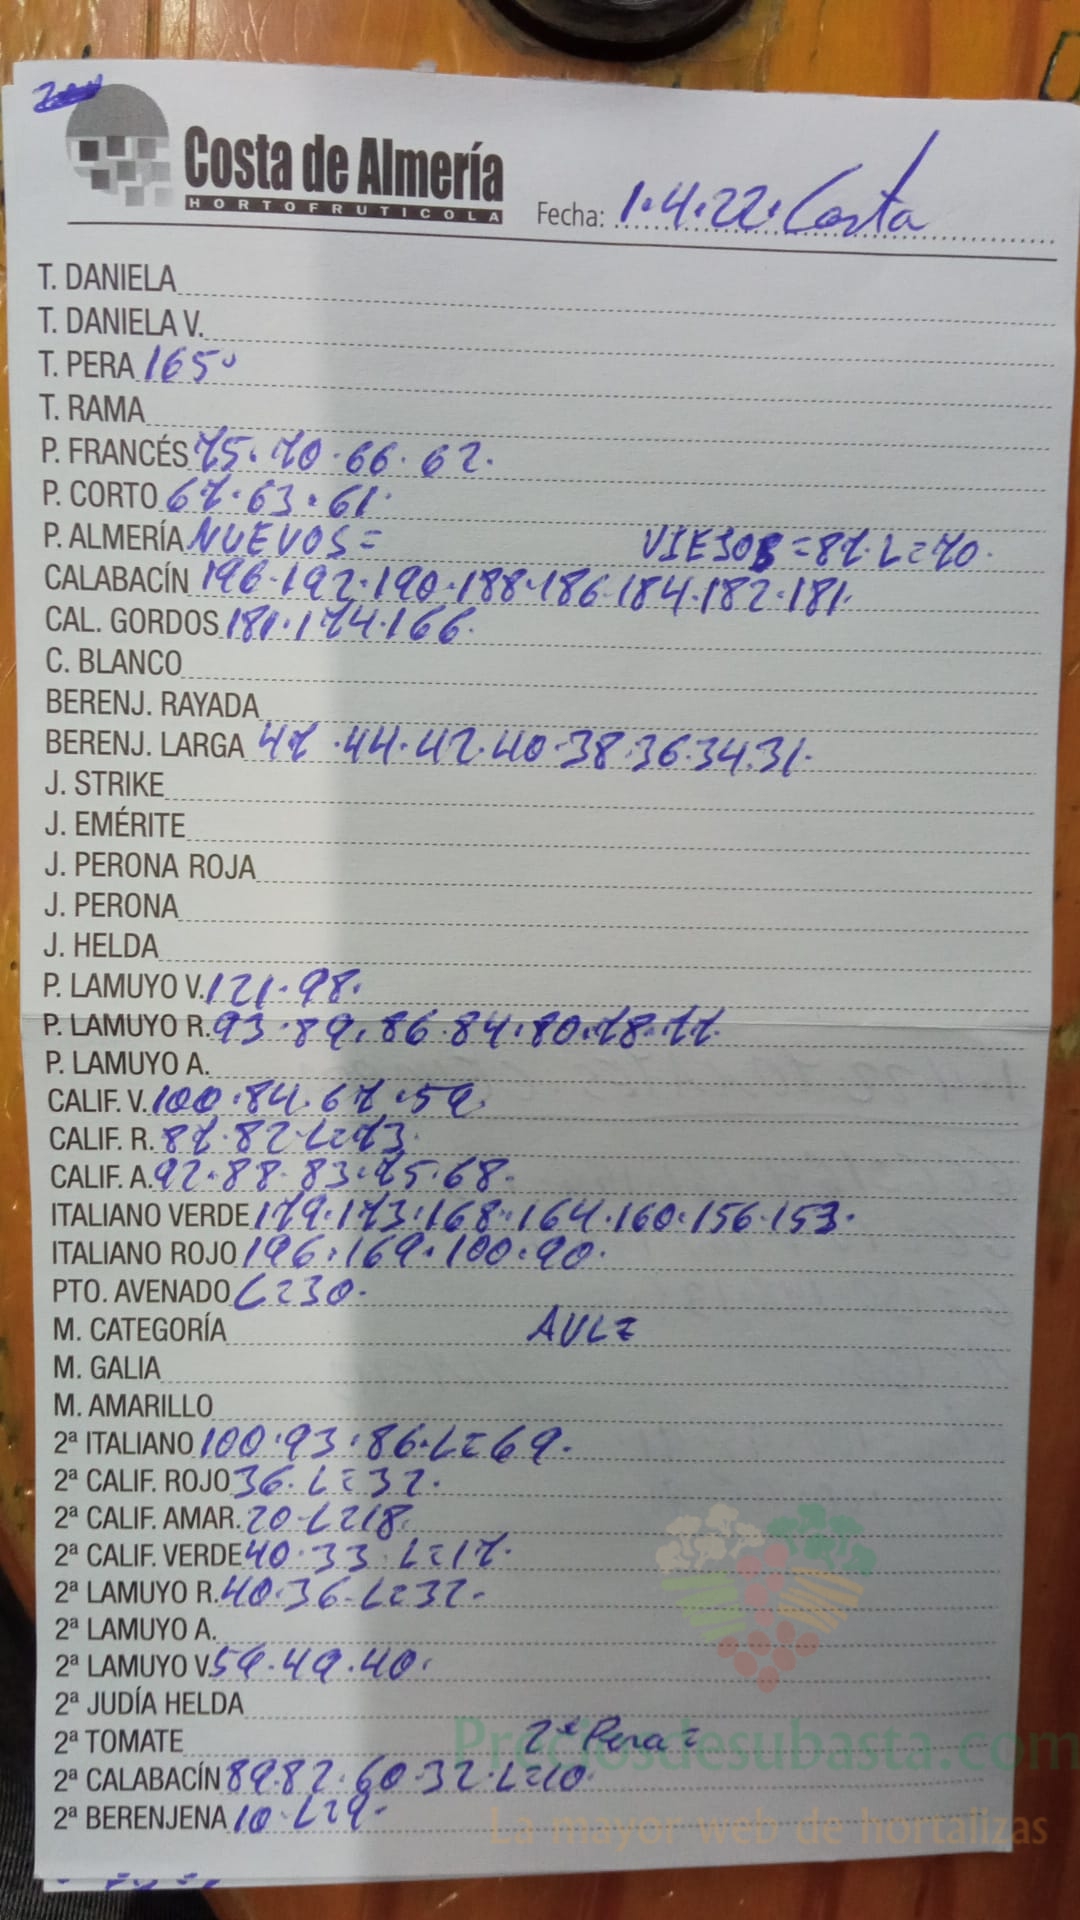 Costa de Almería
HORTOFRUTICOLA
Fecha: 1.4.22. Costa
T. DANIELA
T. DANIELA V.
T. PERA 165.
T. RAMA
P. FRANCÉS 75. 70. 66. 62.
P. CORTO 67. 63. 61.
P. ALMERÍA NUEVOS = VIEJOS = 87. L = 70.
CALABACÍN 196. 192. 190. 188. 186. 184. 182. 181.
CAL. GORDOS 181. 174. 166.
C. BLANCO
BERENJ. RAYADA
BERENJ. LARGA 47. 44. 42. 40. 38. 36. 34. 31.
J. STRIKE
J. EMÉRITE
J. PERONA ROJA
J. PERONA
J. HELDA
P. LAMUYO V. 121. 98.
P. LAMUYO R. 93. 89. 86. 84. 80. 78. 77.
P. LAMUYO A.
CALIF. V. 100. 84. 67. 59.
CALIF. R. 87. 82. L=73.
CALIF. A. 92. 88. 83. 75. 68.
ITALIANO VERDE 179. 173. 168. 164. 160. 156. 153.
ITALIANO ROJO 196. 169. 100. 90.
PTO. AVENADO L=30.
M. CATEGORÍA AUL=
M. GALIA
M. AMARILLO
2ª ITALIANO 100. 93. 86. L=69.
2ª CALIF. ROJO 36. L=32.
2ª CALIF. AMAR. 20. L=18.
2ª CALIF. VERDE 40. 33. L=17.
2ª LAMUYO R. 40. 36. L=32.
2ª LAMUYO A.
2ª LAMUYO V. 59. 49. 40.
2ª JUDÍA HELDA
2ª TOMATE 2ª Pera =
Preciosdesubasta.com
2ª CALABACÍN 89. 82. 60. 32. L=10.
2ª BERENJENA 10. L=9.
La mayor web de hortalizas